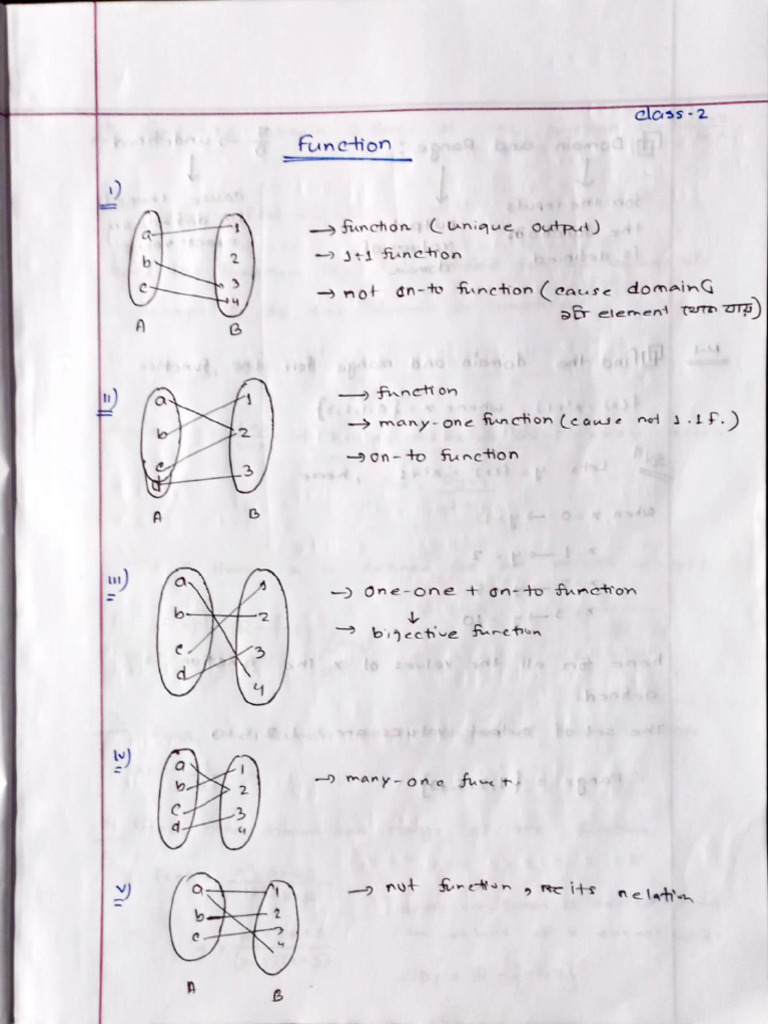 class-2
Function
i)
a 1
b 2
c 3
4
A B
→ function (unique output)
→ 1-1 function
→ not on-to function (cause domain এ
১টা element থেকে যায়)
ii)
a 1
b 2
c
d 3
A B
→ function
→ many-one function (cause not 1.1f.)
→ on-to function
iii)
a 1
b 2
c 3
d 4
→ one-one + on-to function
↓
→ bijective function
iv)
a 1
b 2
c 3
d 4
→ many-one funct
v)
a 1
b 2
c 3
4
A B
→ not function, its relation